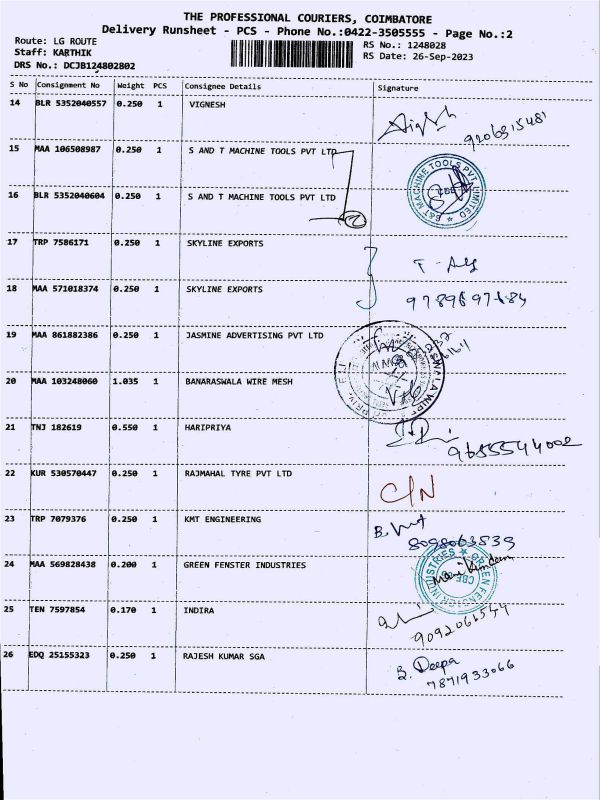 THE PROFESSIONAL COURIERS, COIMBATORE
Delivery Runsheet - PCS - Phone No.:0422-3505555 - Page No.:2
Route: LG ROUTE RS No.: 1248028
Staff: KARTHIK RS Date: 26-Sep-2023
DRS No.: DCJB124802802
S No Consignment No Weight PCS Consignee Details Signature
14 BLR 5352040557 0.250 1 VIGNESH
9206315481
15 MAA 106508987 0.250 1 S AND T MACHINE TOOLS PVT LTD
S&T MACHINE TOOLS PVT. LIMITED ★ CBE
16 BLR 5352040604 0.250 1 S AND T MACHINE TOOLS PVT LTD
17 TRP 7586171 0.250 1 SKYLINE EXPORTS
18 MAA 571018374 0.250 1 SKYLINE EXPORTS
9789897684
19 MAA 861882386 0.250 1 JASMINE ADVERTISING PVT LTD
20 MAA 103248060 1.035 1 BANARASWALA WIRE MESH
21 TNJ 182619 0.550 1 HARIPRIYA
9655544002
22 KUR 530570447 0.250 1 RAJMAHAL TYRE PVT LTD
C/N
23 TRP 7079376 0.250 1 KMT ENGINEERING
8098063539
24 MAA 569828438 0.200 1 GREEN FENSTER INDUSTRIES
★ GREEN FENSTER INDUSTRIES CBE
25 TEN 7597854 0.170 1 INDIRA
9092061544
26 EDQ 25155323 0.250 1 RAJESH KUMAR SGA
B. Deepa
7871933066